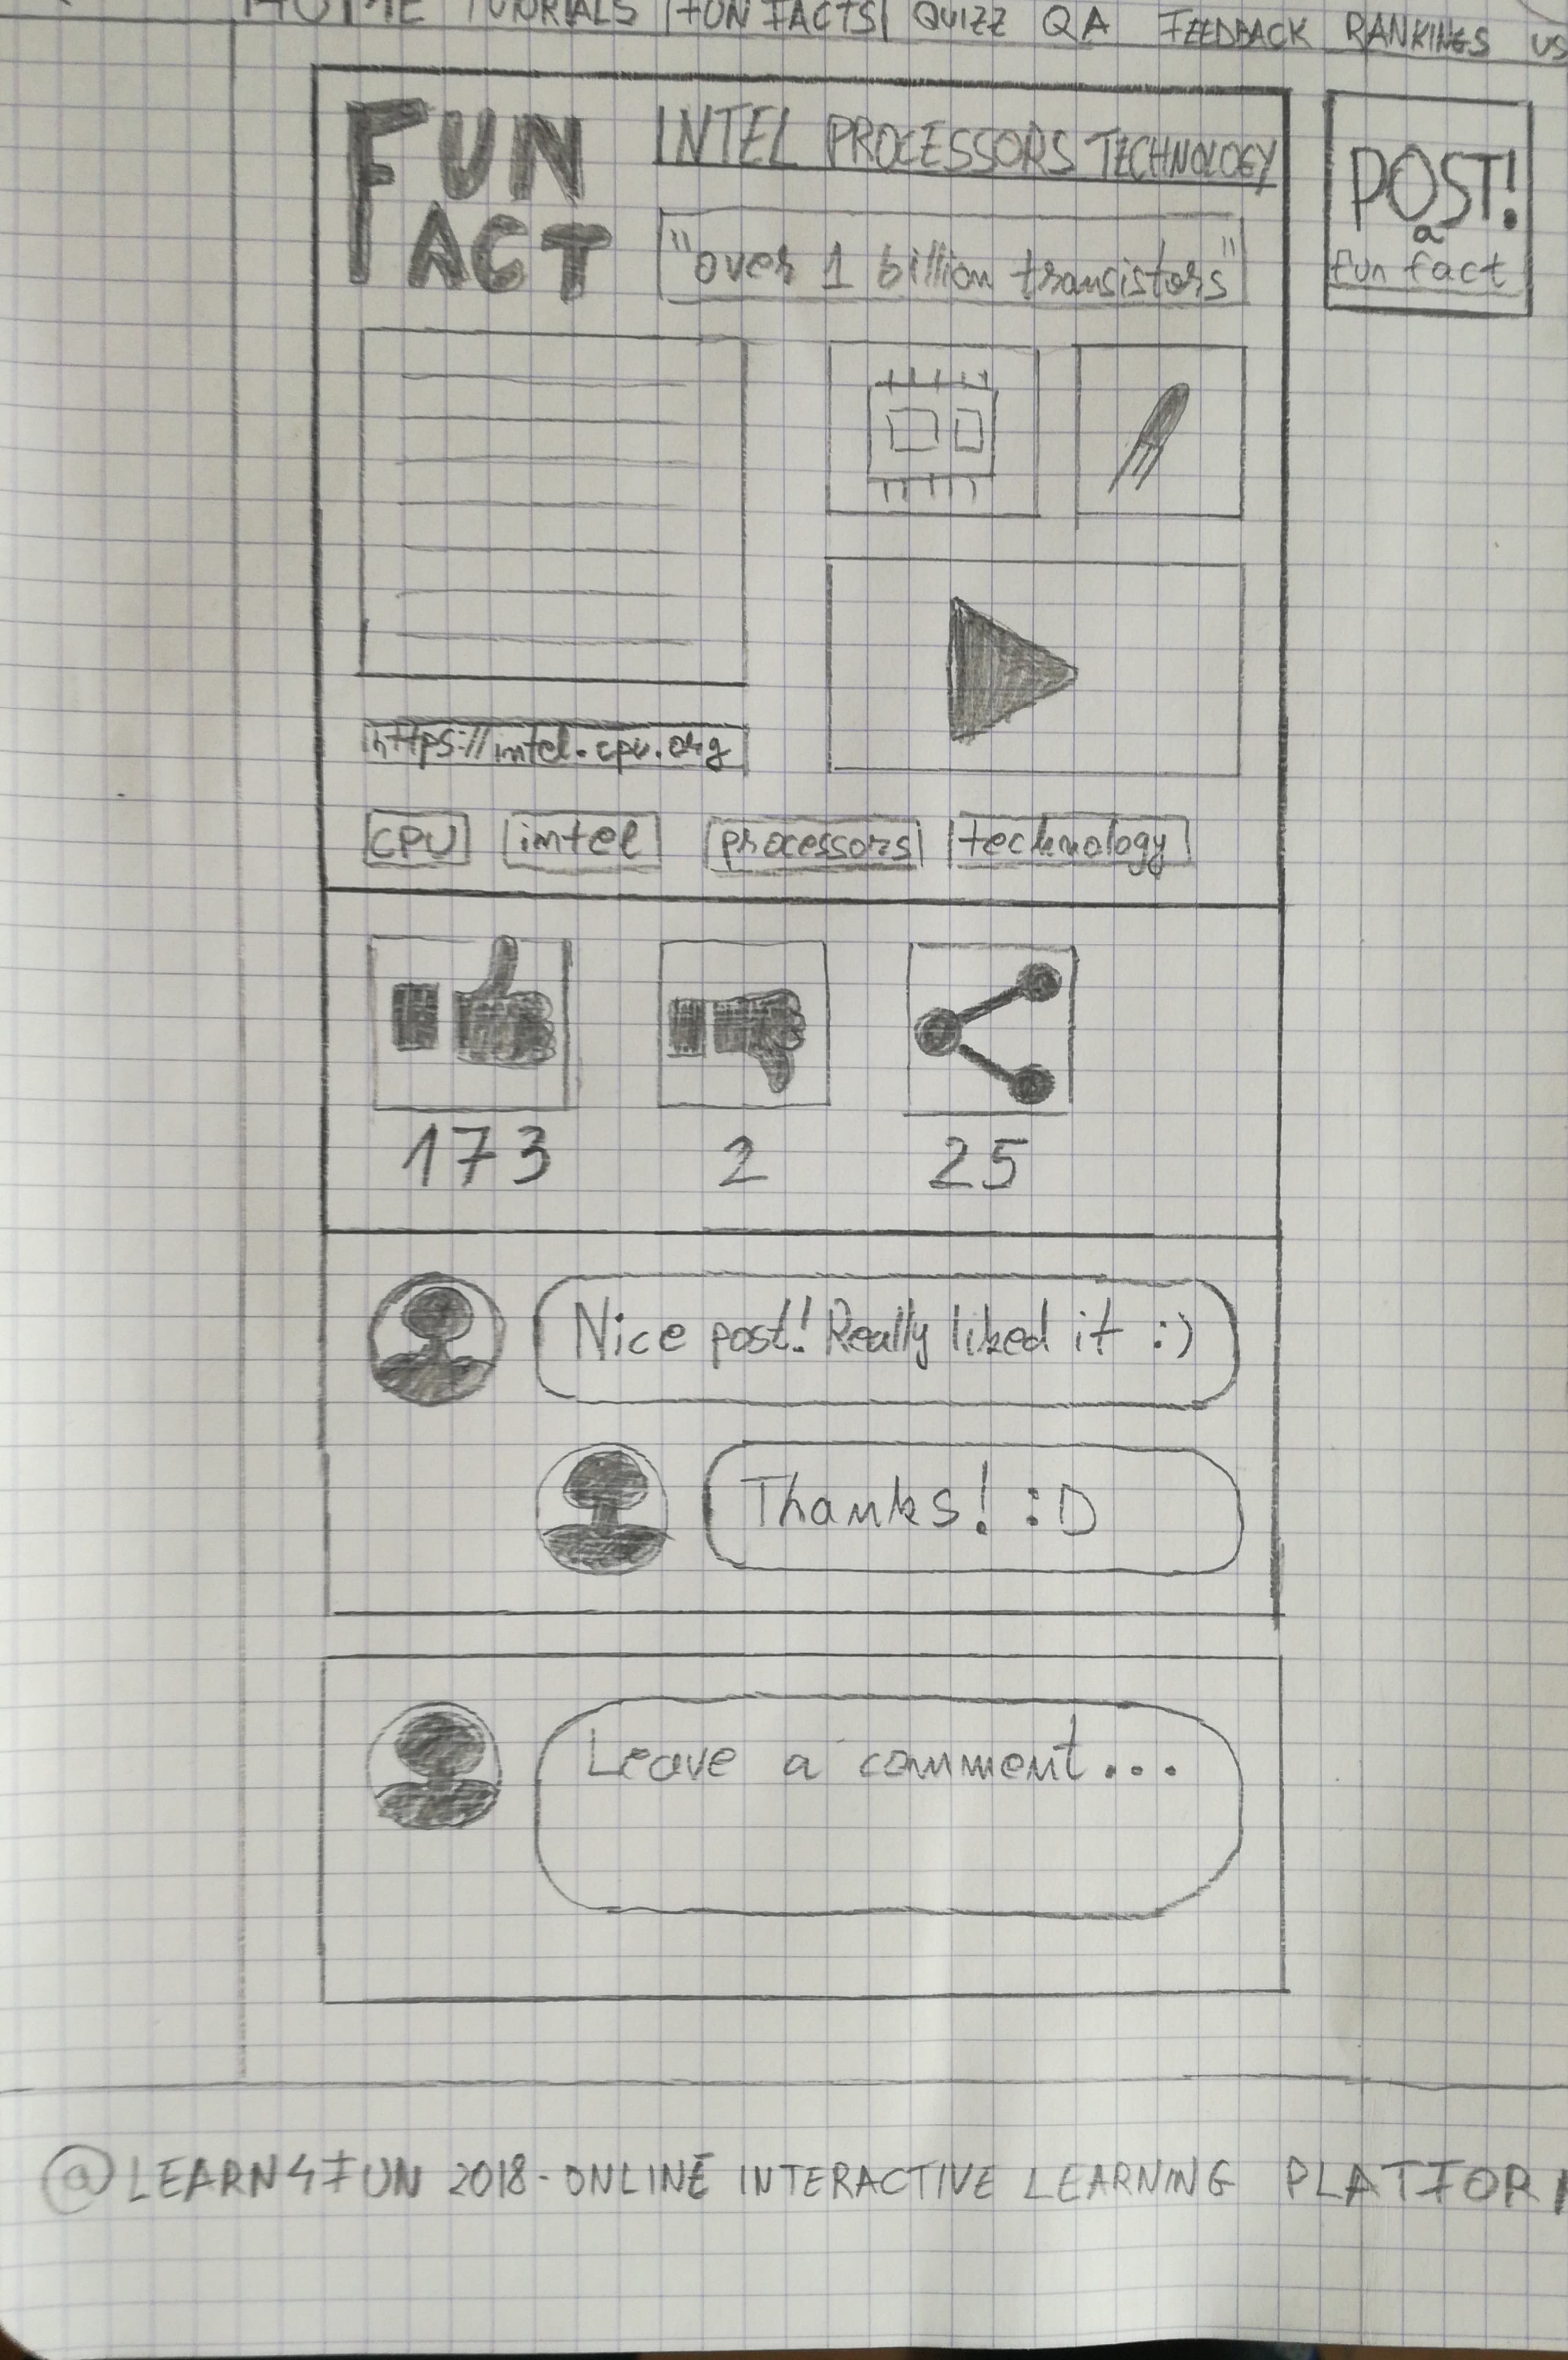 HOME TUTORIALS FUN FACTS QUIZZ QA FEEDBACK RANKINGS US
FUN
FACT
INTEL PROCESSORS TECHNOLOGY
"over 1 billion transistors"
POST!
a
fun fact
https://intel.cpu.org
CPU intel processors technology
173 2 25
Nice post! Really liked it :)
Thanks! :D
Leave a comment...
@LEARN4FUN 2018-ONLINE INTERACTIVE LEARNING PLATFORM